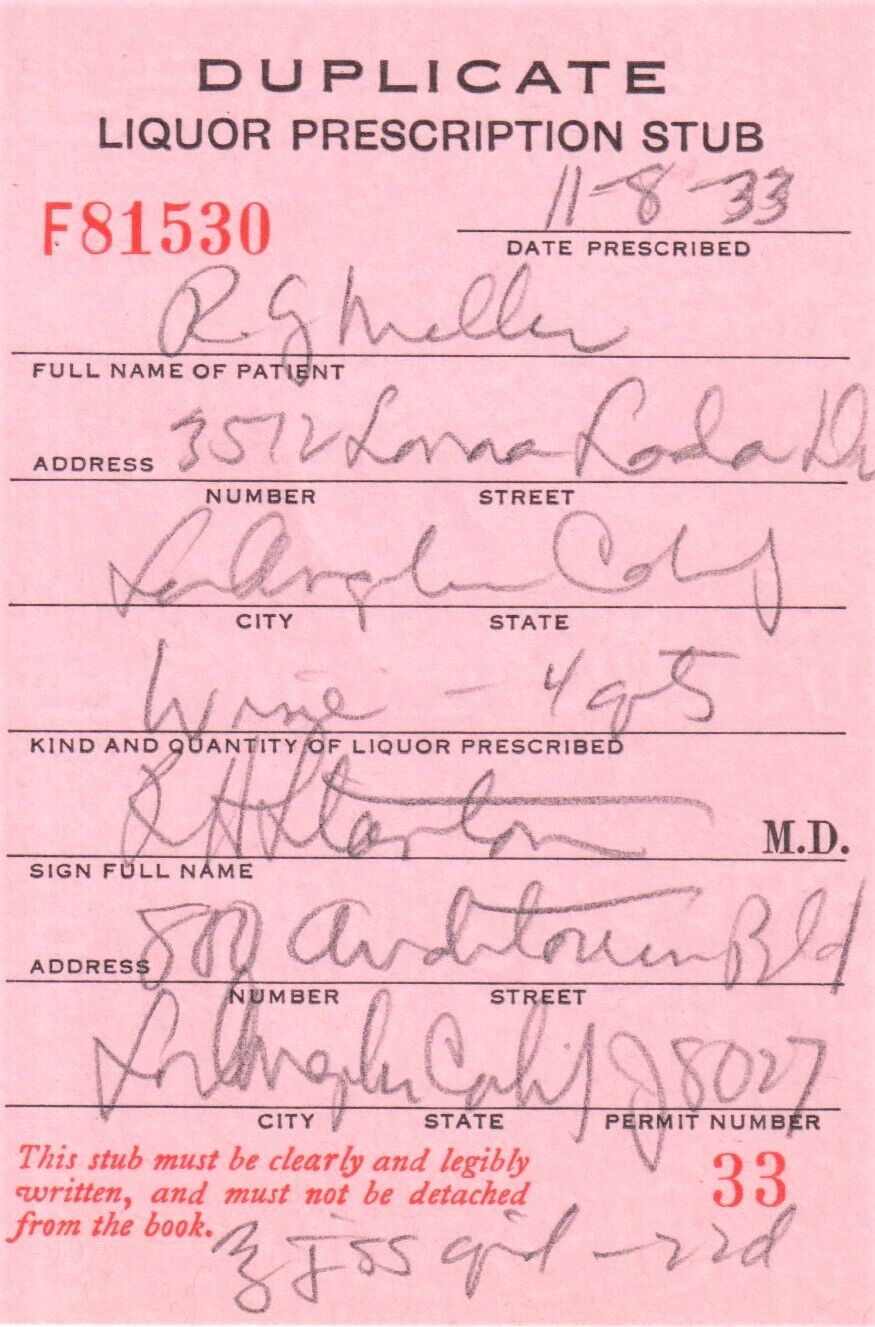 DUPLICATE
LIQUOR PRESCRIPTION STUB
11-8-33
F81530
DATE PRESCRIBED
R. G Miller
FULL NAME OF PATIENT
ADDRESS 3512 Loma Lada Dr
NUMBER STREET
Los Angeles Calif
CITY STATE
Wine - 4 qts
KIND AND QUANTITY OF LIQUOR PRESCRIBED
R H M.D.
SIGN FULL NAME
ADDRESS Auditorium Bld
NUMBER STREET
Los Angeles Calif J8027
CITY STATE PERMIT NUMBER
This stub must be clearly and legibly
written, and must not be detached
from the book.
33